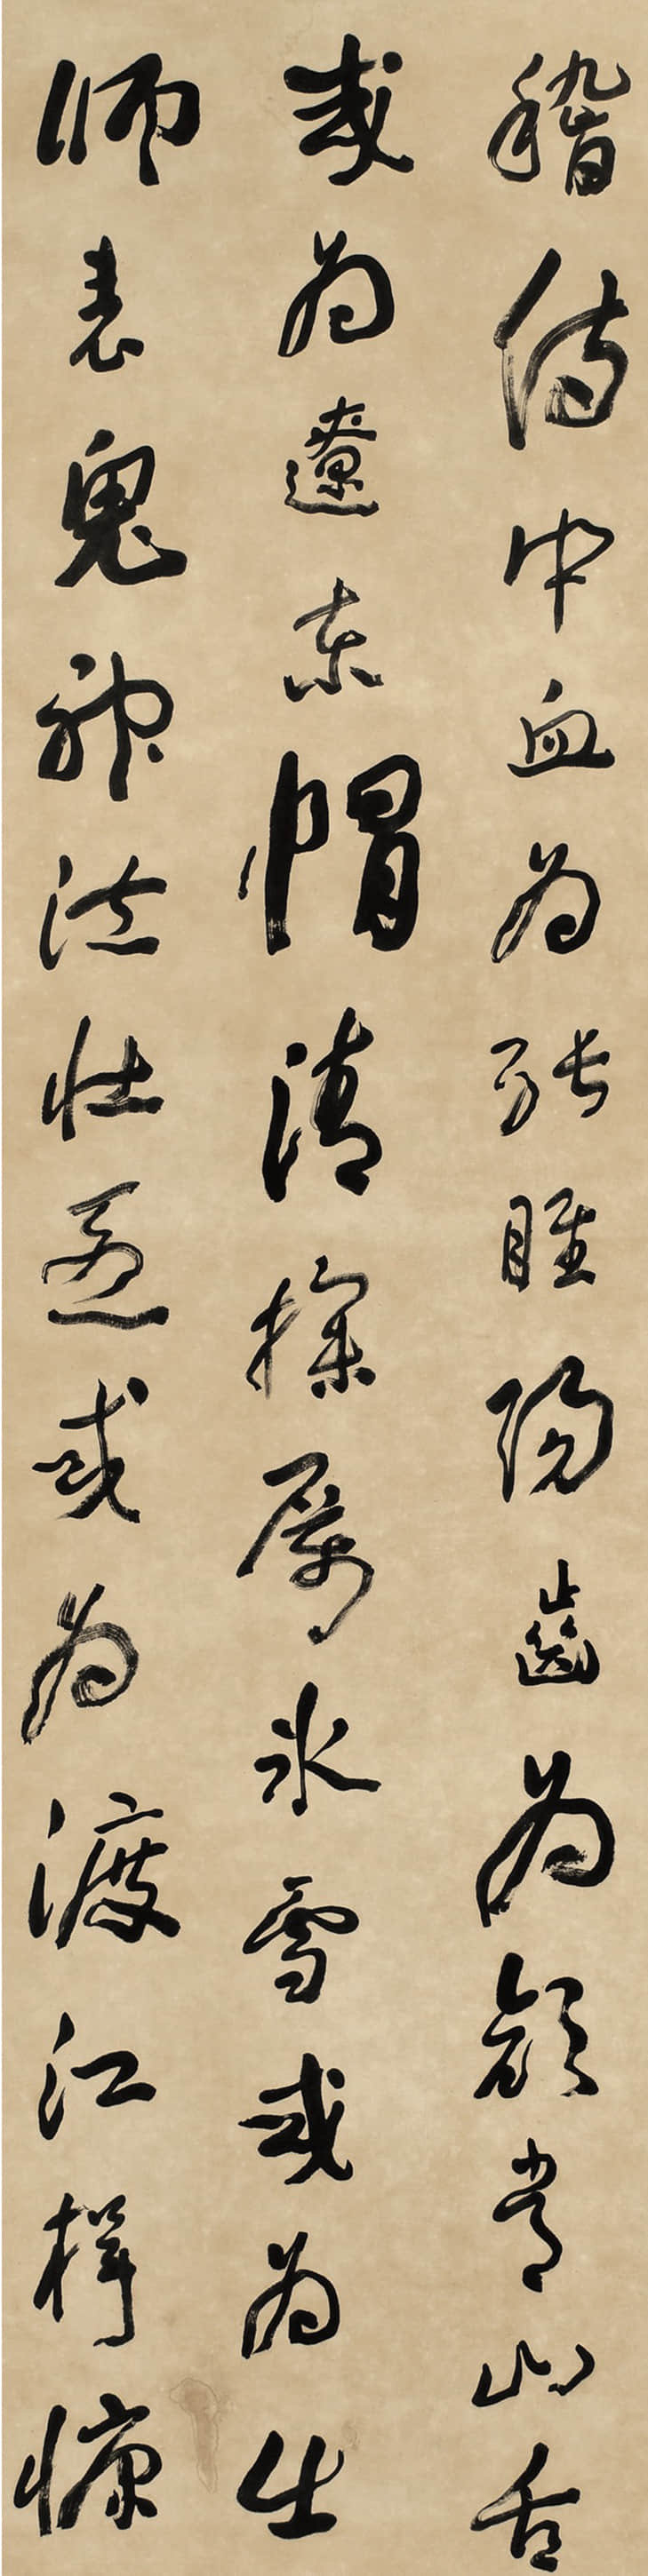 稽侍中血為張睢陽齒為顏常山舌
或為遼東帽清操厲冰雪或為出
師表鬼神泣壯烈或為渡江楫慷